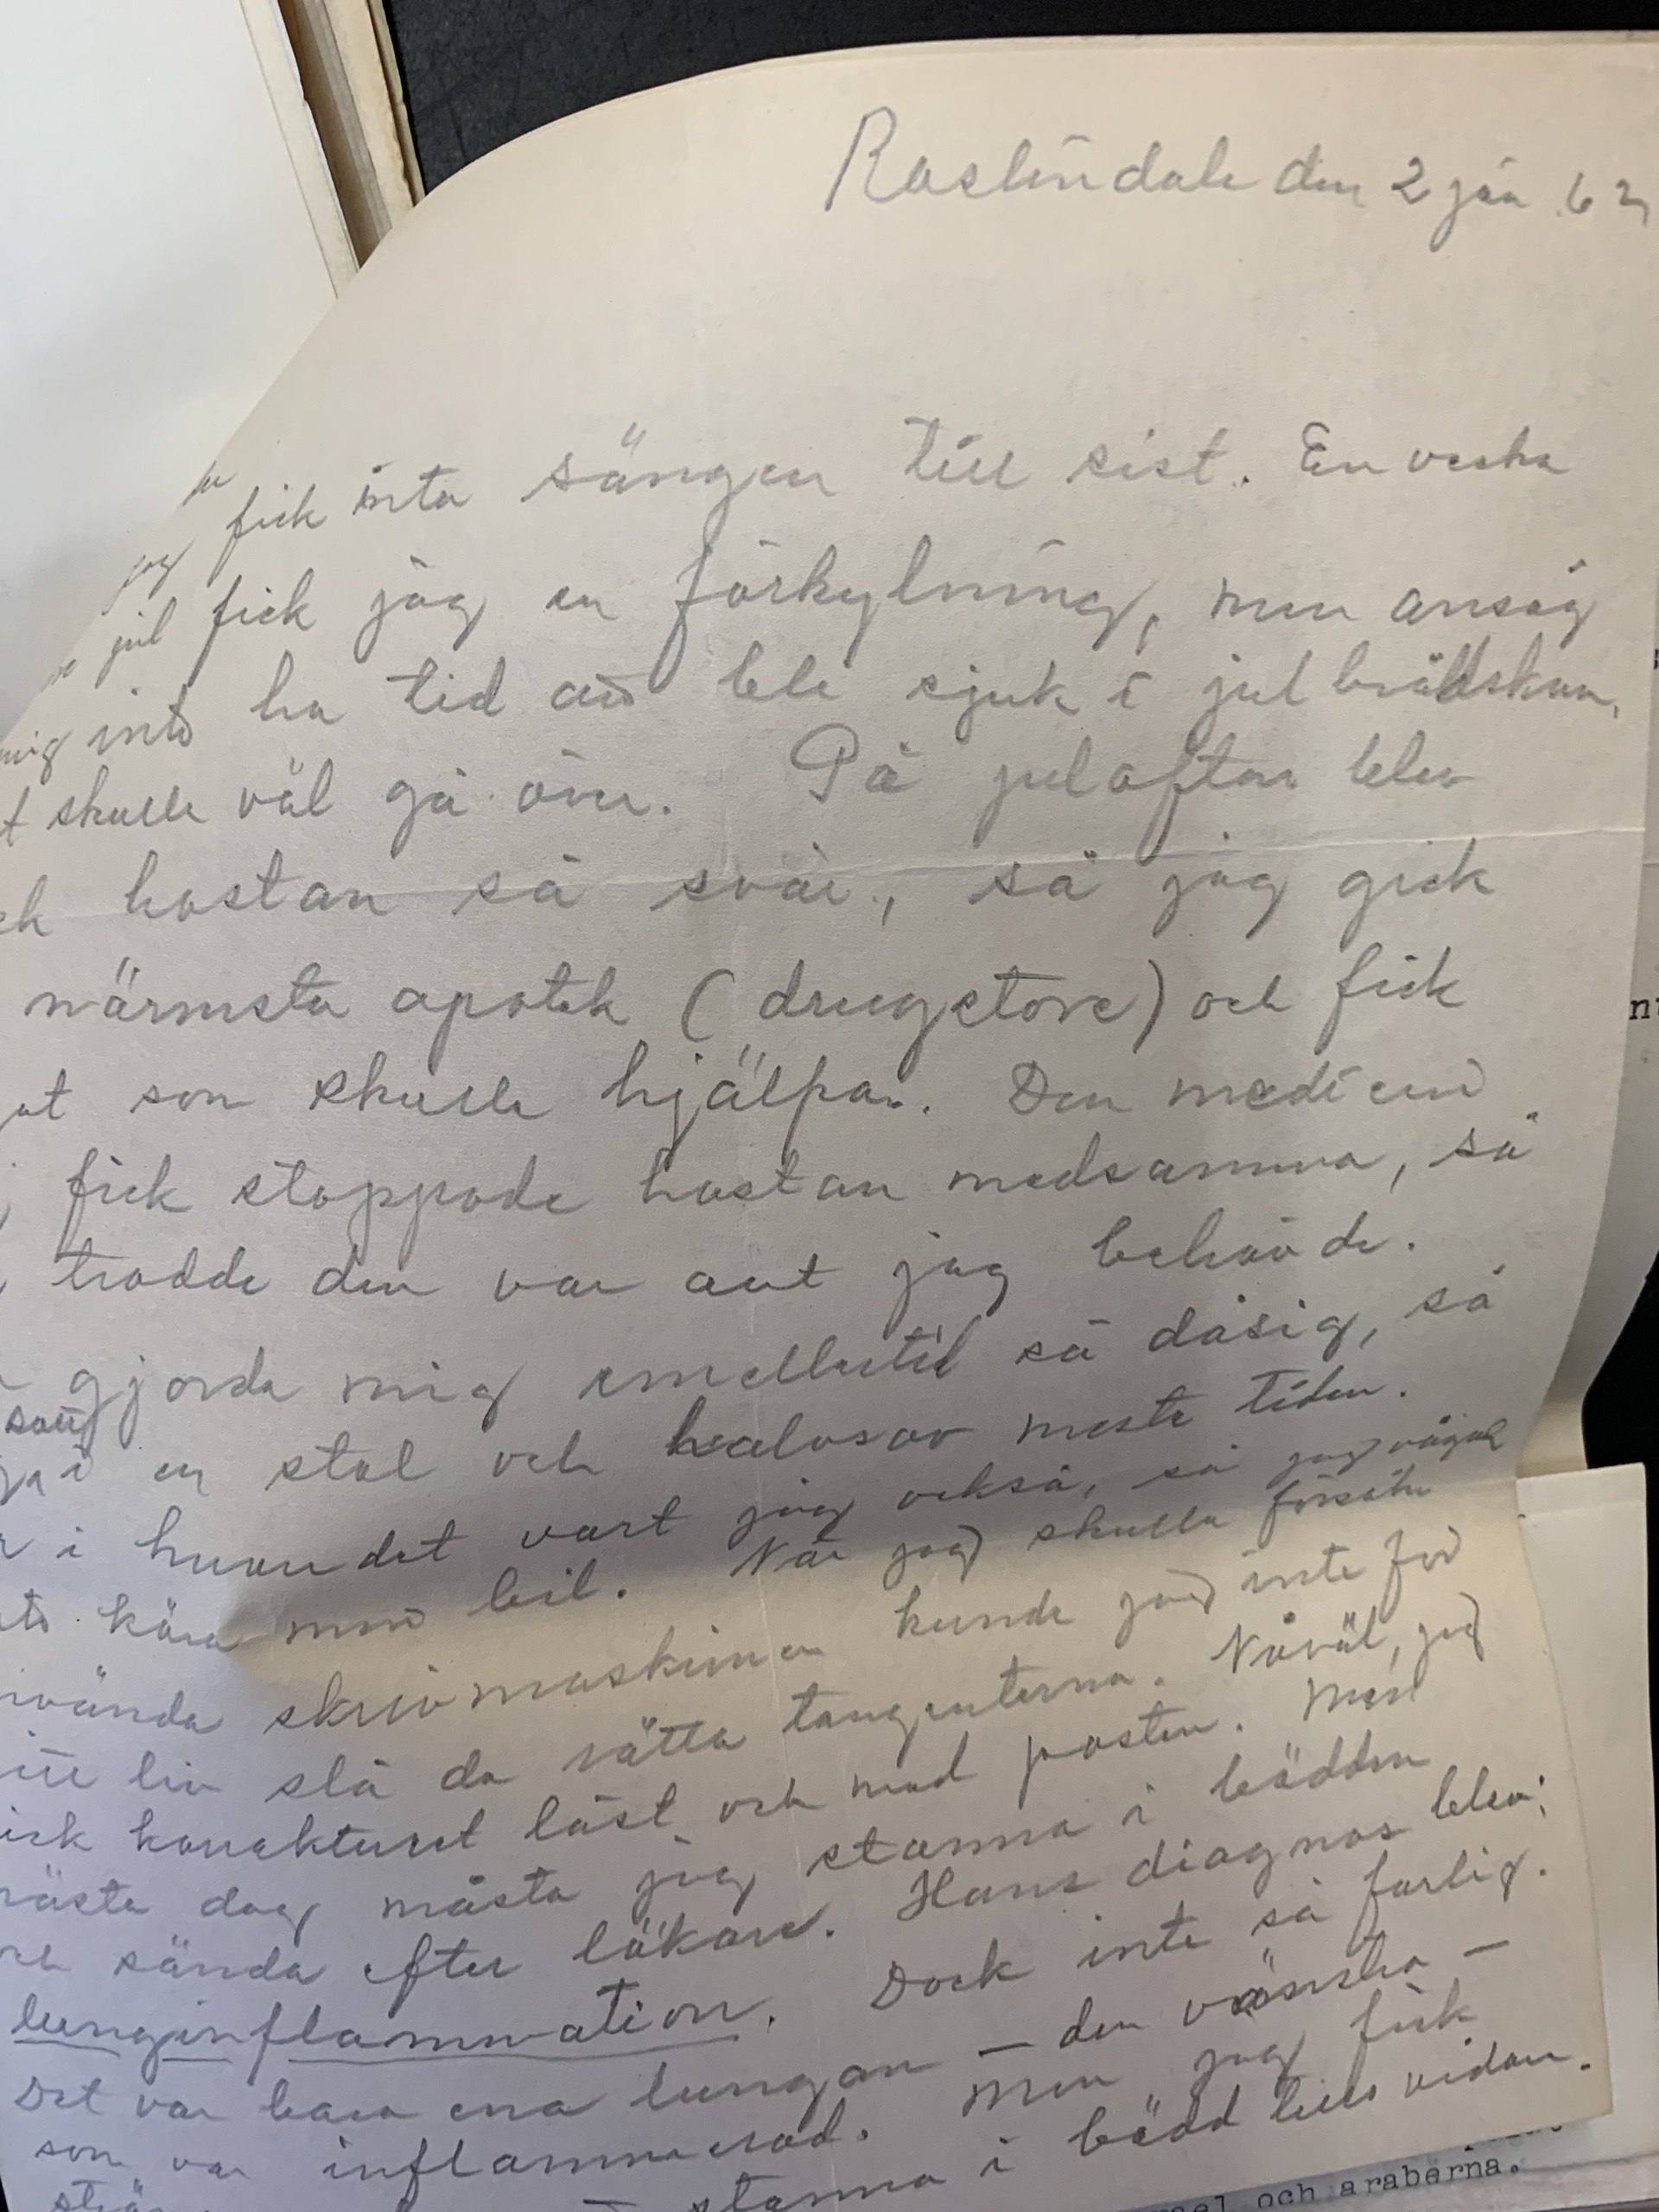 Roslindale den 2 jan 62
jag fick inta sängen till sist. En vecka
jul fick jag en förkylning, men ansåg
mig inte ha tid att bli sjuk i julbrådskan,
t skulle väl gå över. På julaftan blev
ck hostan så svår, så jag gick
närmsta apotek (drugstore) och fick
ot som skulle hjälpa. Den medicin
fick stoppade hostan medsamma, så
trodde den var allt jag behövde.
gjorde mig emellertid så dåsig, så
satt
i en stol och halvsov mesta tiden.
r i huvudet vart jag också, så jag vågade
te köra min bil. När jag skulle försöka
nvända skrivmaskinen kunde jag inte för
itt liv slå de rätta tangenterna. Nåväl, jag
ick korrekturet läst och med posten. Men
nästa dag måste jag stanna i bädden
och sända efter läkare. Hans diagnos blev:
lunginflammation. Dock inte så farlig.
Det var bara ena lungan – den vänstra –
som var inflammerad. Men jag fick
stanna i bädd tills vidare.
och araberna.